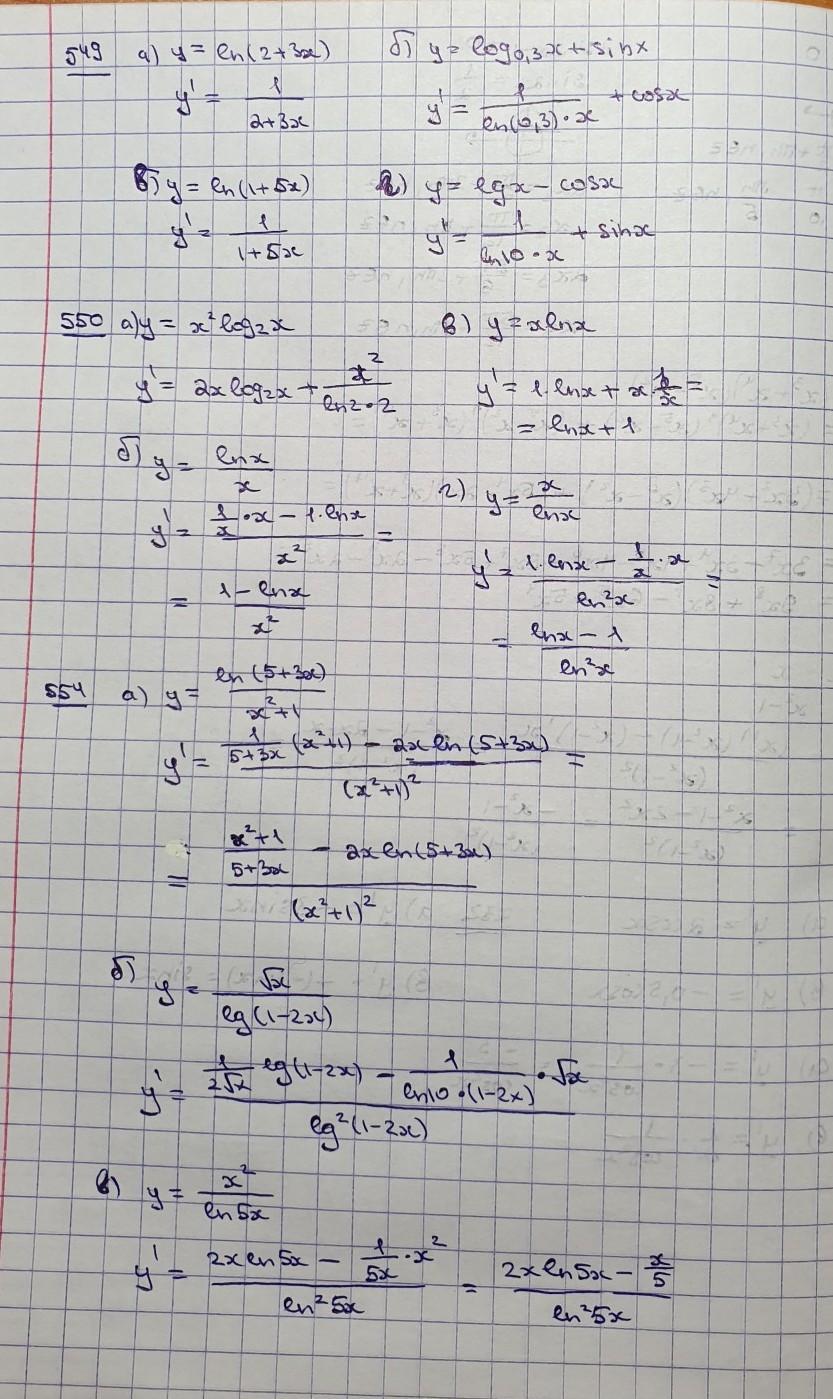 549 а) y = ln(2+3x) б) y = log₀,₃x + sinx
y' = 1/(2+3x) y' = 1/(ln(0,3)·x) + cosx
в) y = ln(1+5x) г) y = lgx − cosx
y' = 1/(1+5x) y' = 1/(ln10·x) + sinx
550 а) y = x²log₂x в) y = xlnx
y' = 2xlog₂x + x²/(ln2·2) y' = 1·lnx + x·1/x =
= lnx + 1
б) y = lnx/x г) y = x/lnx
y' = (1/x·x − 1·lnx)/x² = y' = (1·lnx − 1/x·x)/ln²x =
= (1−lnx)/x² = (lnx − 1)/ln²x
554 а) y = ln(5+3x)/(x²+1)
y' = (1/(5+3x) (x²+1) − 2x ln(5+3x))/(x²+1)² =
= ((x²+1)/(5+3x) − 2xln(5+3x))/(x²+1)²
б) y = √x/lg(1−2x)
y' = (1/(2√x) lg(1−2x) − 1/(ln10·(1−2x))·√x)/lg²(1−2x)
в) y = x²/ln5x
y' = (2xln5x − 1/5x·x²)/ln²5x = (2xln5x − x/5)/ln²5x